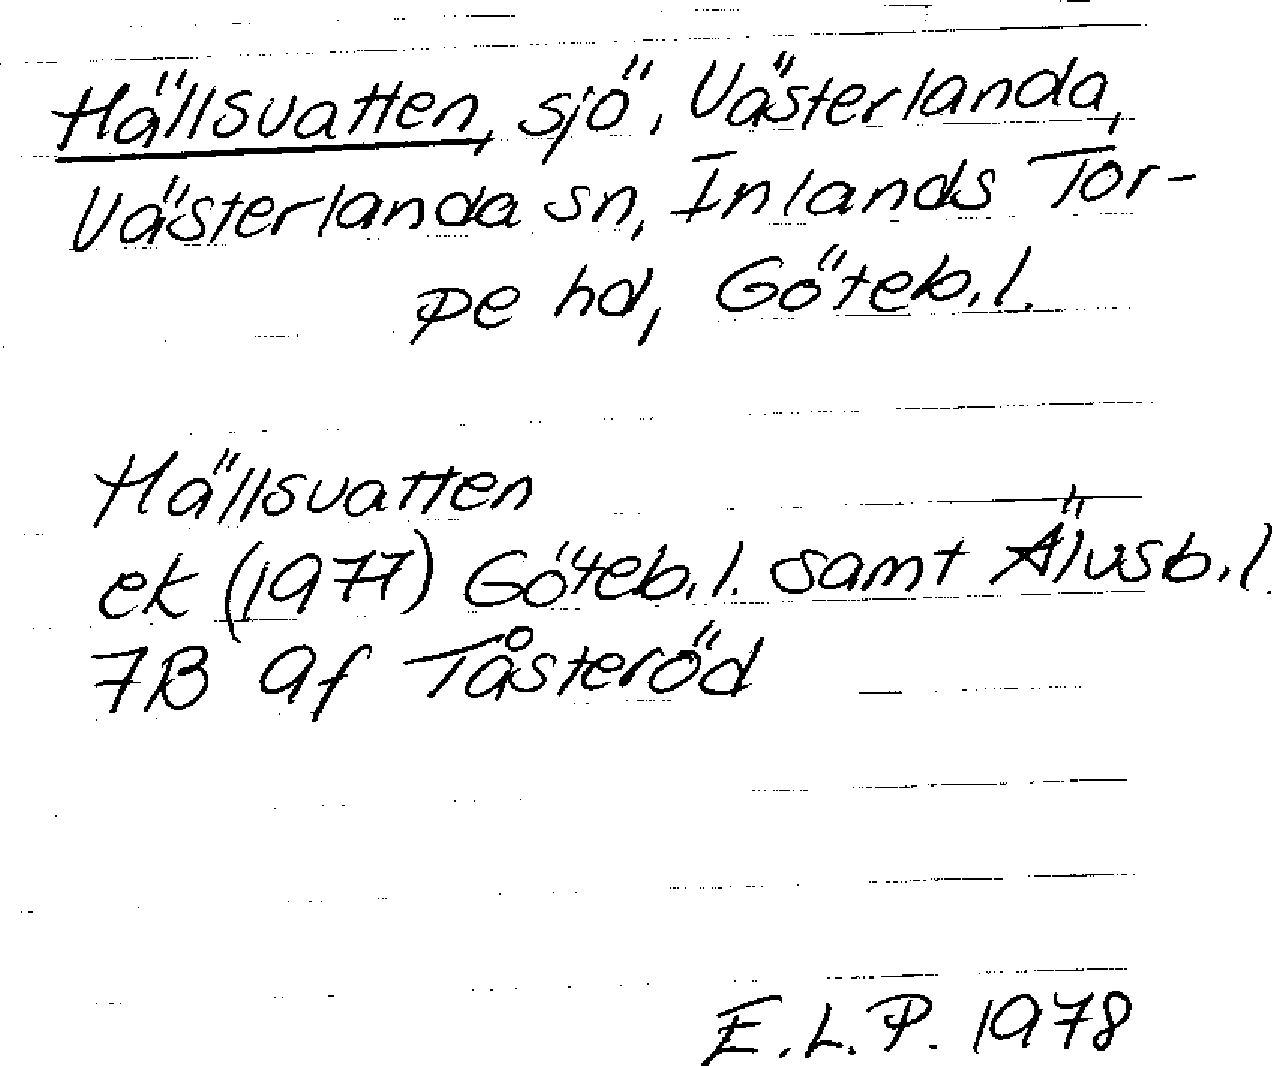 Hällsvatten, sjö, Västerlanda,
Västerlanda sn, Inlands Tor-
pe hd, Göteb.l.
Hällsvatten
ek (1977) Göteb.l. samt Älvsb.l.
7B 9f Tåsteröd
E.L.P. 1978